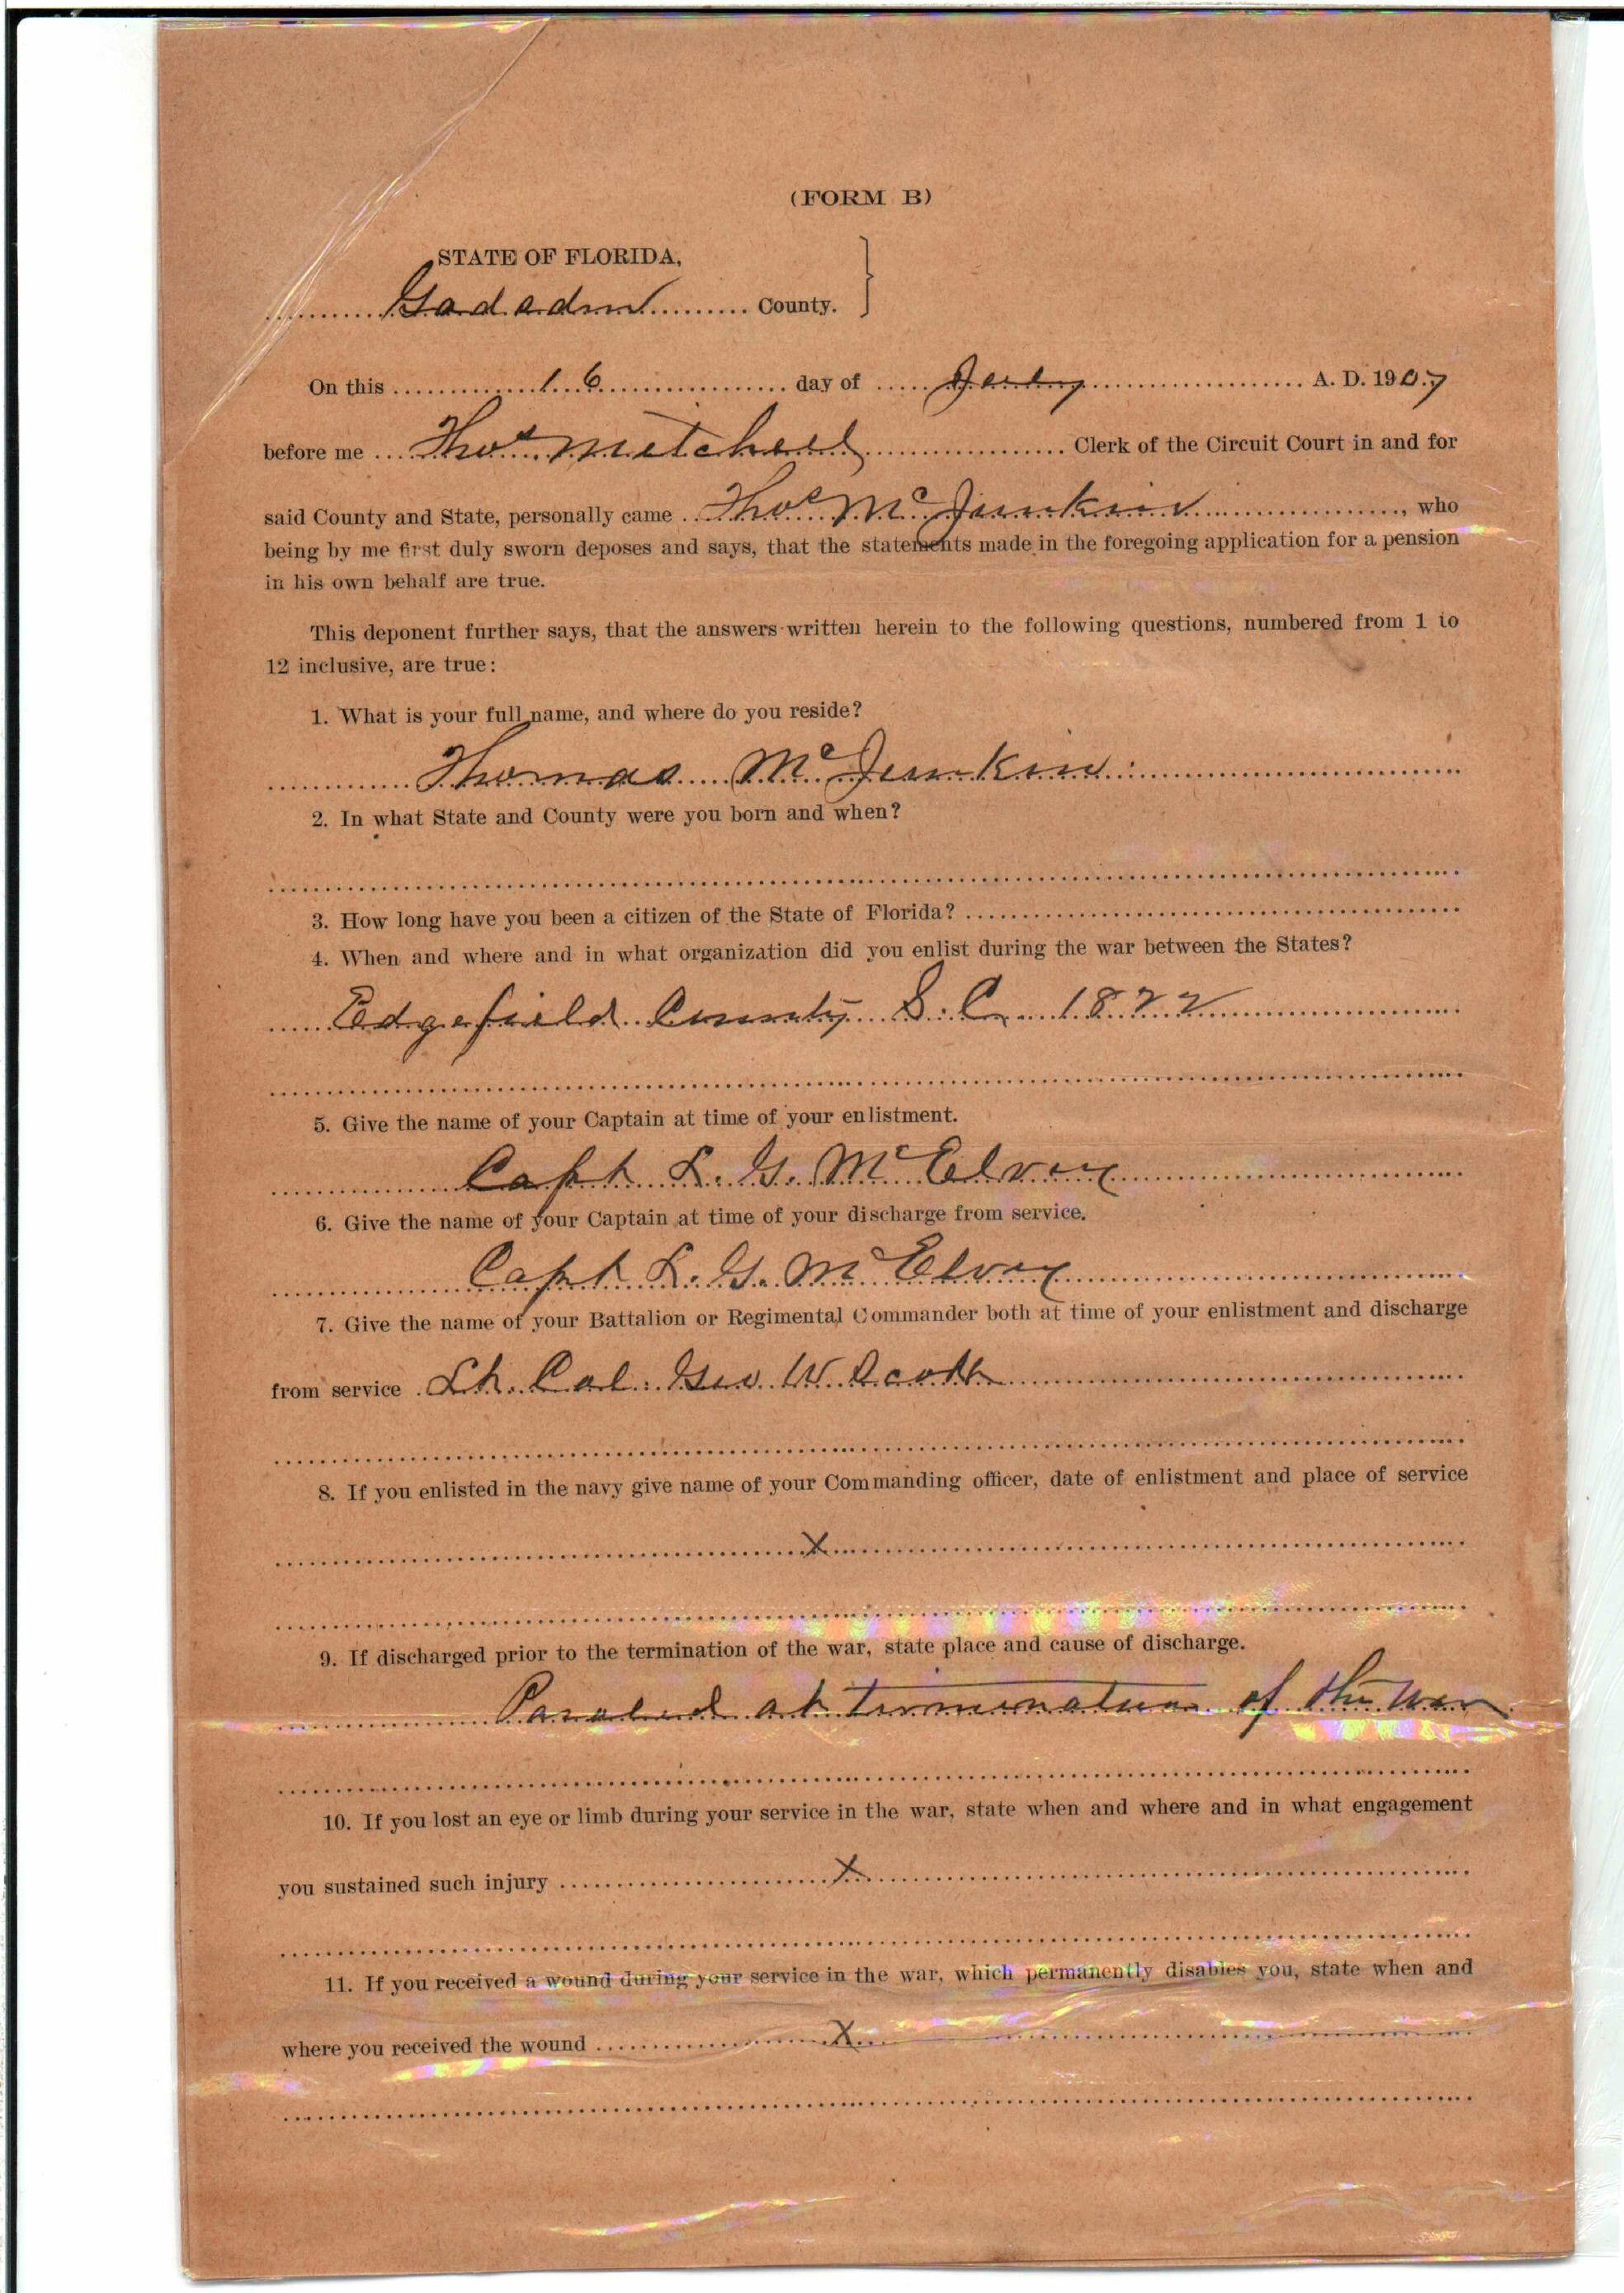 (FORM B)
STATE OF FLORIDA,
Gadsden County.
On this 16 day of July A. D. 1907
before me Thos Mitchell Clerk of the Circuit Court in and for
said County and State, personally came Thos McJunkin, who
being by me first duly sworn deposes and says, that the statements made in the foregoing application for a pension
in his own behalf are true.
This deponent further says, that the answers written herein to the following questions, numbered from 1 to
12 inclusive, are true:
1. What is your full name, and where do you reside?
Thomas McJunkin
2. In what State and County were you born and when?
3. How long have you been a citizen of the State of Florida?
4. When and where and in what organization did you enlist during the war between the States?
Edgefield County S.C. 1822
5. Give the name of your Captain at time of your enlistment.
Capt L. G. McElvey
6. Give the name of your Captain at time of your discharge from service.
Capt L. G. McElvey
7. Give the name of your Battalion or Regimental Commander both at time of your enlistment and discharge
from service Lt. Col. Geo W. Scott
8. If you enlisted in the navy give name of your Commanding officer, date of enlistment and place of service
X
9. If discharged prior to the termination of the war, state place and cause of discharge.
Paroled at termination of the war
10. If you lost an eye or limb during your service in the war, state when and where and in what engagement
you sustained such injury X
11. If you received a wound during your service in the war, which permanently disables you, state when and
where you received the wound X